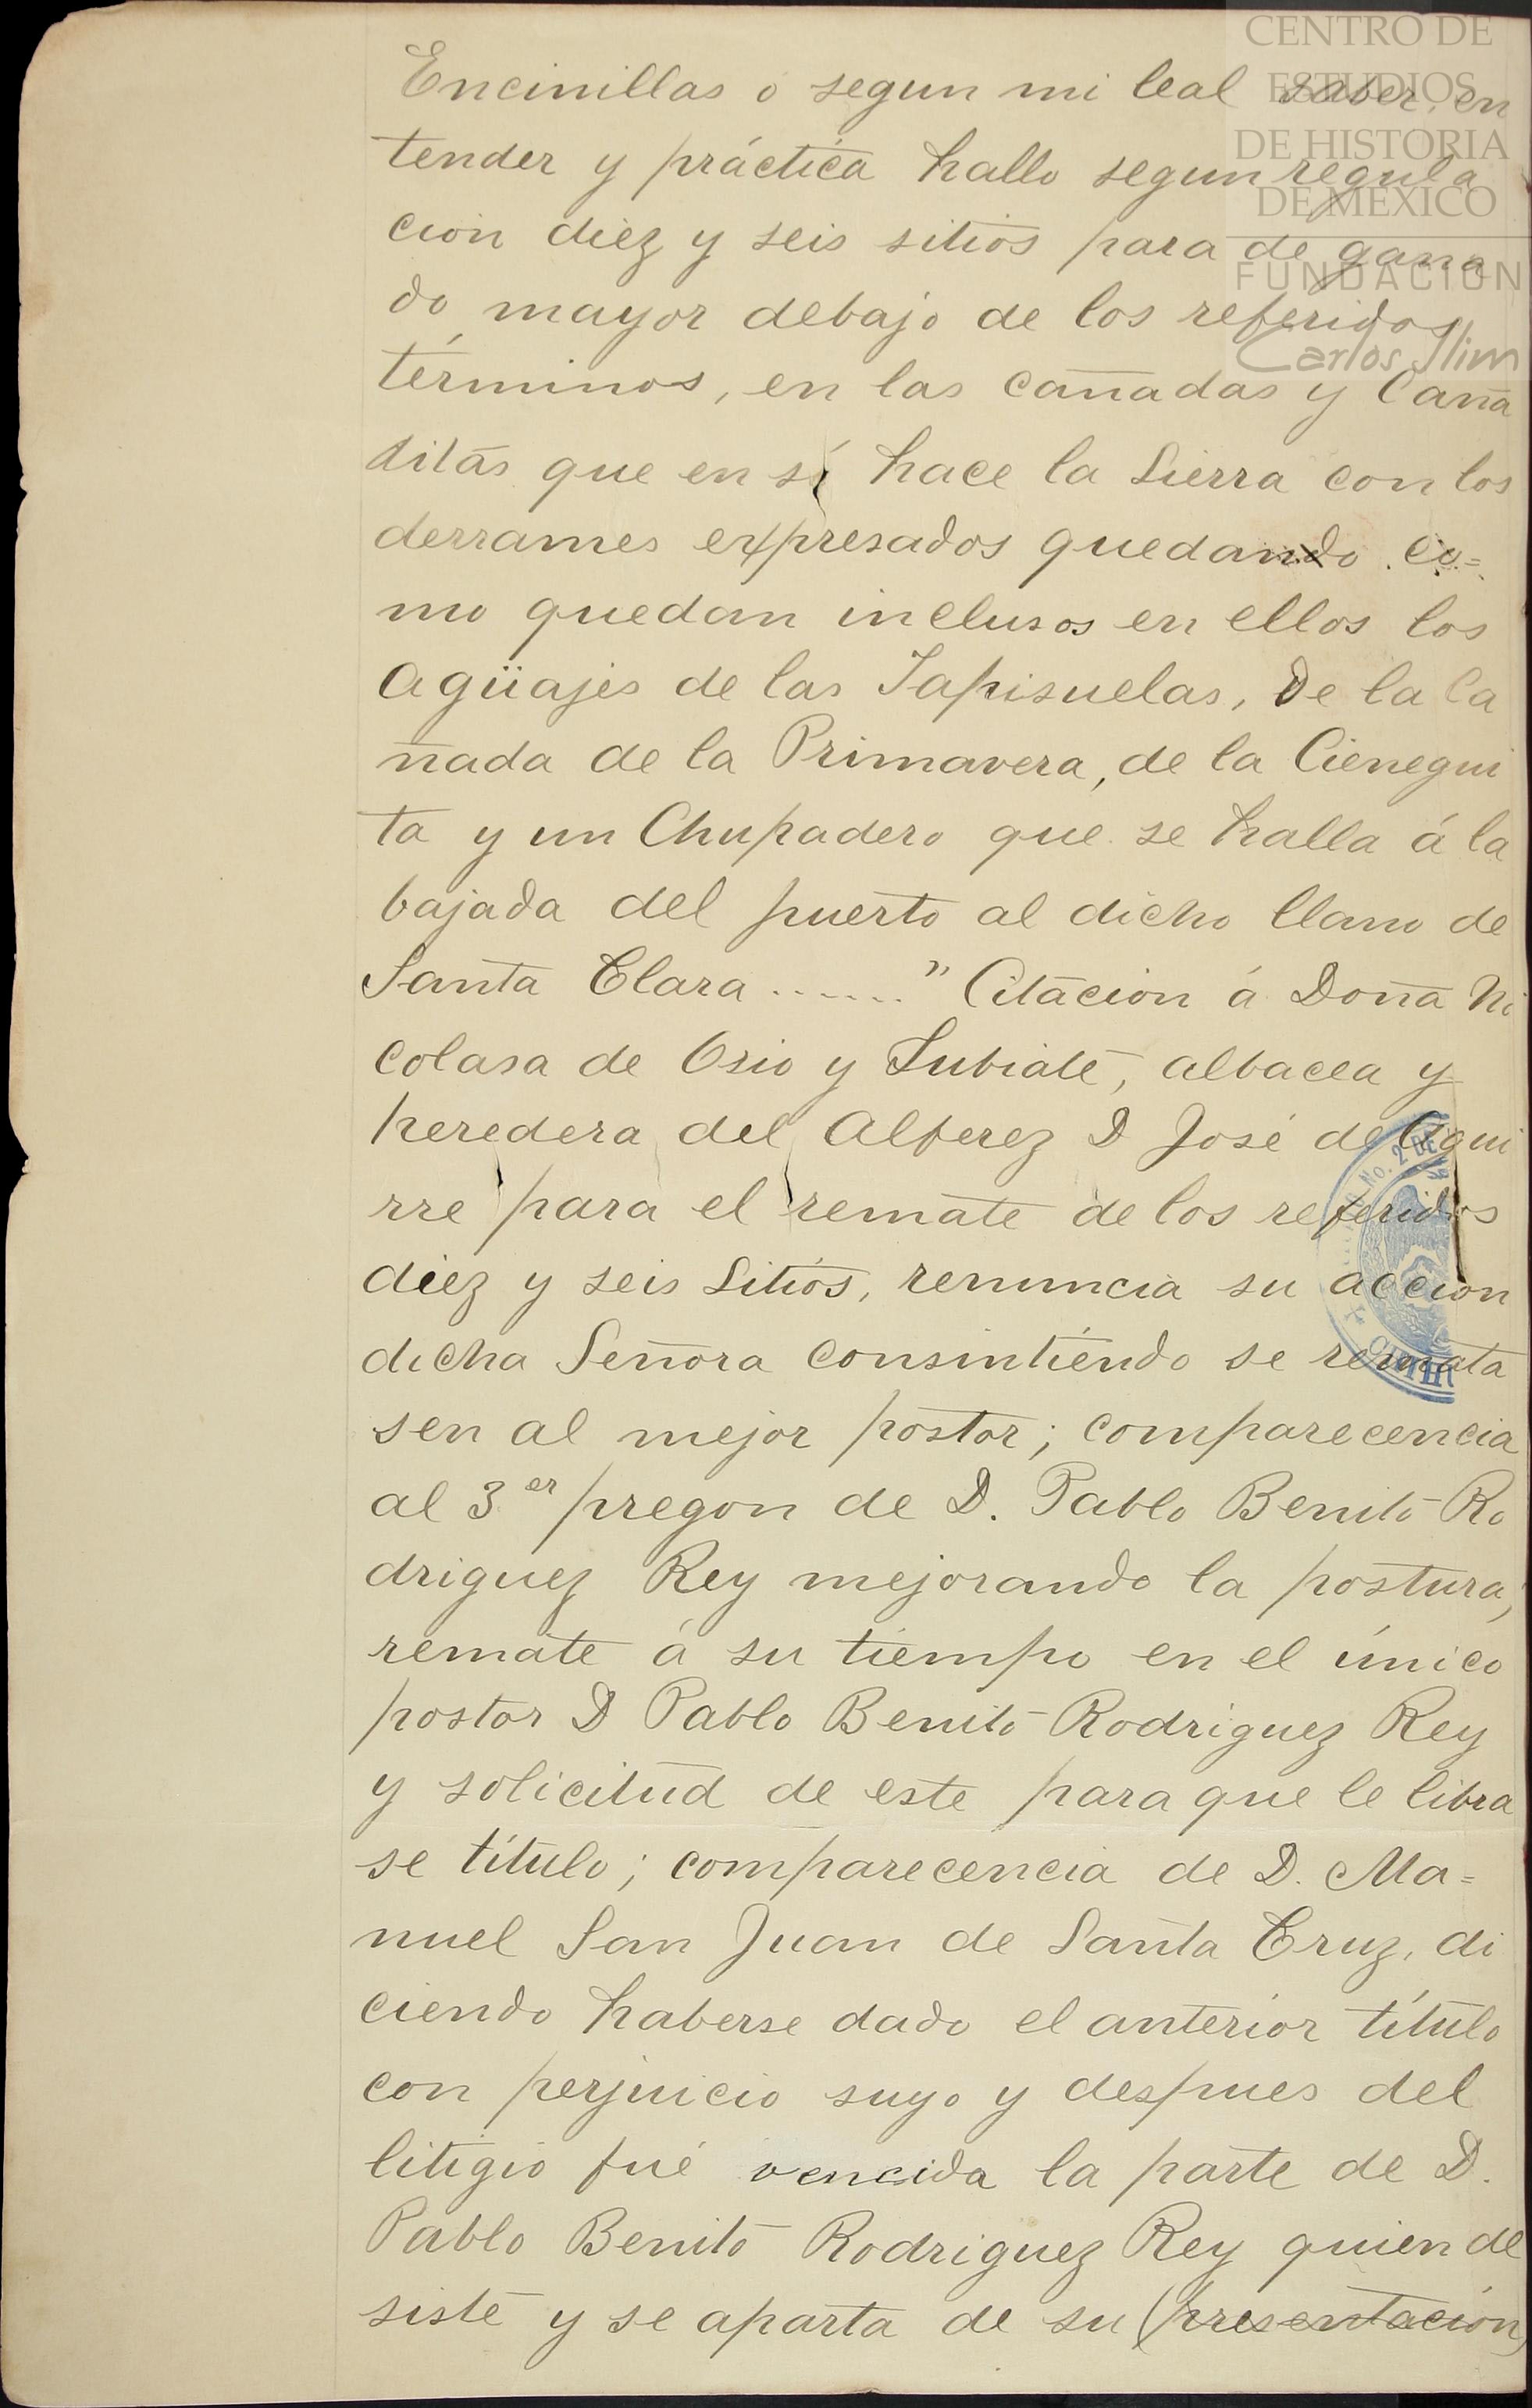 CENTRO DE
ESTUDIOS
DE HISTORIA
DE MÉXICO
FUNDACIÓN
Carlos Slim
Encinillas o segun mi leal saber, en
tender y práctica hallo segun regula
cion diez y seis sitios para de gana
do mayor debajo de los referidos
términos, en las cañadas y Caña
ditas que en sí hace la Sierra con los
derrames expresados quedando co=
mo quedan inclusos en ellos los
agüajes de las Tapisuelas, de la Ca
ñada de la Primavera, de la Cienegui
ta y un Chupadero que se halla á la
bajada del puerto al dicho llano de
Santa Clara ......" Citacion á Doña Ni
colasa de Osio y Subiate, albacea y
heredera del Alferez D José de Agui
rre para el remate de los referidos
diez y seis Sitios, renuncia su accion
dicha Señora consintiendo se remata
sen al mejor postor; comparecencia
al 3er pregon de D. Pablo Benito Ro
driguez Rey mejorando la postura,
remate á su tiempo en el único
postor D Pablo Benito Rodriguez Rey
y solicitud de este para que le libra
se título; comparecencia de D. Ma=
nuel San Juan de Santa Cruz, di
ciendo haberse dado el anterior título
con perjuicio suyo y despues del
litigio fué vencida la parte de D.
Pablo Benito Rodriguez Rey quien de
siste y se aparta de su (presentacion)
No. 2 DE